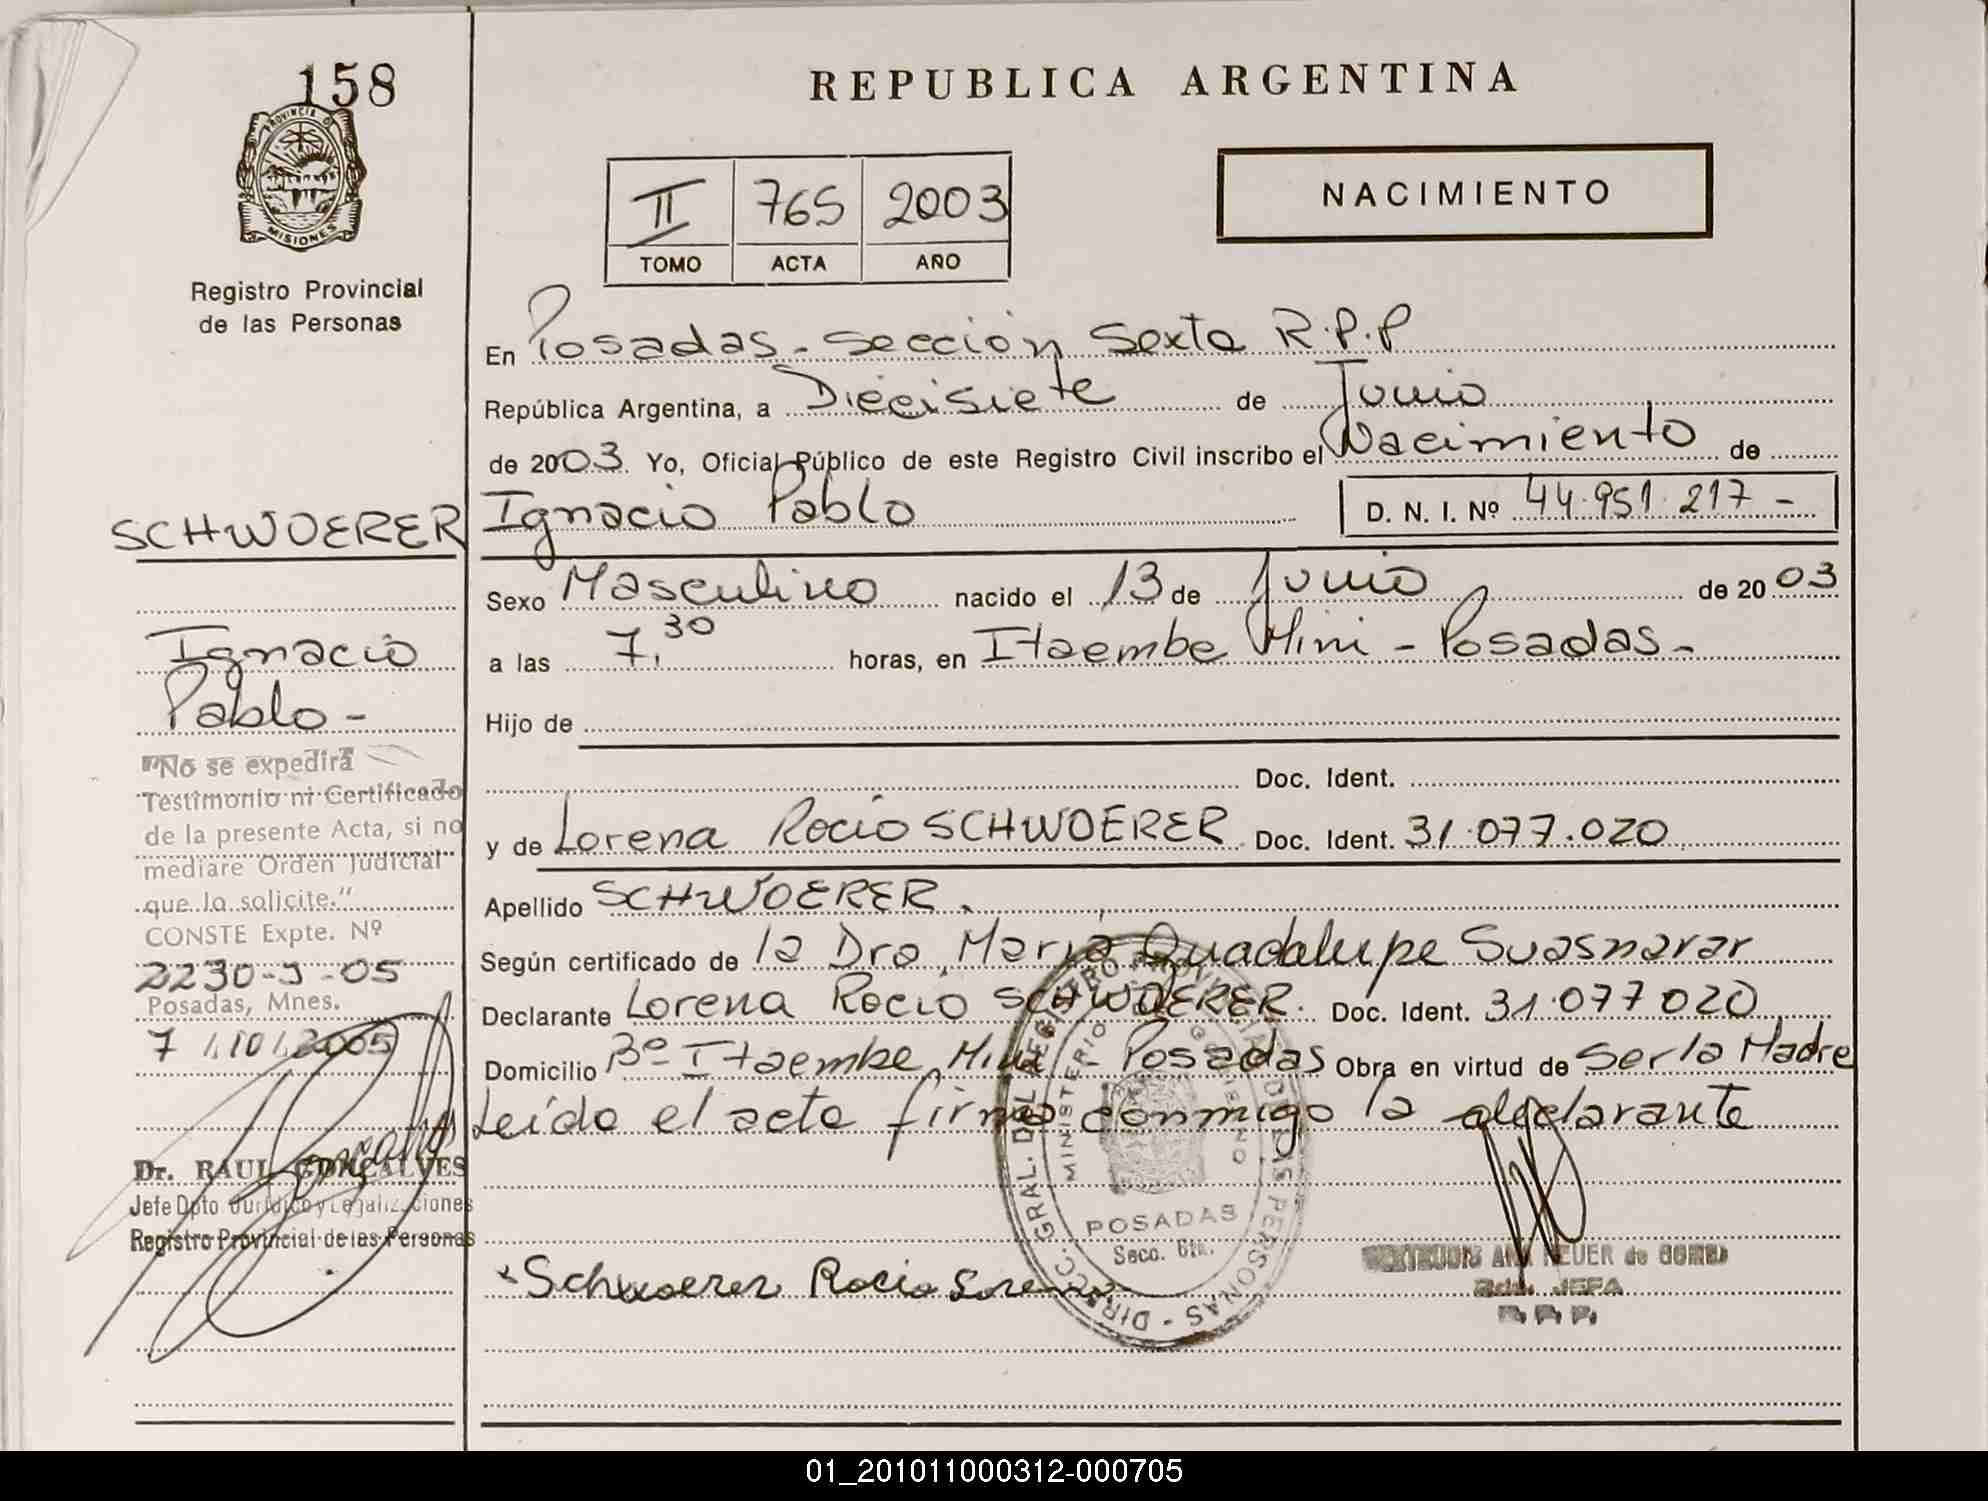 158
PROVINCIA D
MISIONES
Registro Provincial
de las Personas
REPUBLICA ARGENTINA
II 765 2003
TOMO ACTA AÑO
NACIMIENTO
En Posadas - Sección Sexta R.P.P
República Argentina, a Diecisiete de Junio
de 2003. Yo, Oficial Público de este Registro Civil inscribo el Nacimiento de
SCHWOERER Ignacio Pablo D. N. I. Nº 44.951.217 -
Sexo Masculino nacido el 13 de Junio de 2003
a las 7,30 horas, en Itaembe Mini - Posadas -
Hijo de
Doc. Ident.
y de Lorena Rocío SCHWOERER Doc. Ident. 31.077.020
Apellido SCHWOERER.
Según certificado de la Dra. María Guadalupe Suasnavar
Declarante Lorena Rocio SCHWOERER. Doc. Ident. 31.077020
Domicilio Bº Itaembe Mini - Posadas Obra en virtud de Ser la Madre
Leído el acta firma conmigo la declarante
Ignacio
Pablo -
"No se expedirá
Testimonio ni Certificado
de la presente Acta, si no
mediare Orden Judicial
que lo solicite."
CONSTE Expte. Nº
2230-J-05
Posadas, Mnes.
7 / 10 / 2005
Dr. RAUL GONÇALVES
Jefe Dpto Jurídico y Legalizaciones
Registro Provincial de las Personas
Schwoerer Rocio Lorena
DIRECC. GRAL. DEL REGISTRO PROVINCIAL DE LAS PERSONAS -
MINISTERIO GOBIERNO
POSADAS
Secc. 6ta.
JEFA
R.P.P.
01_201011000312-000705